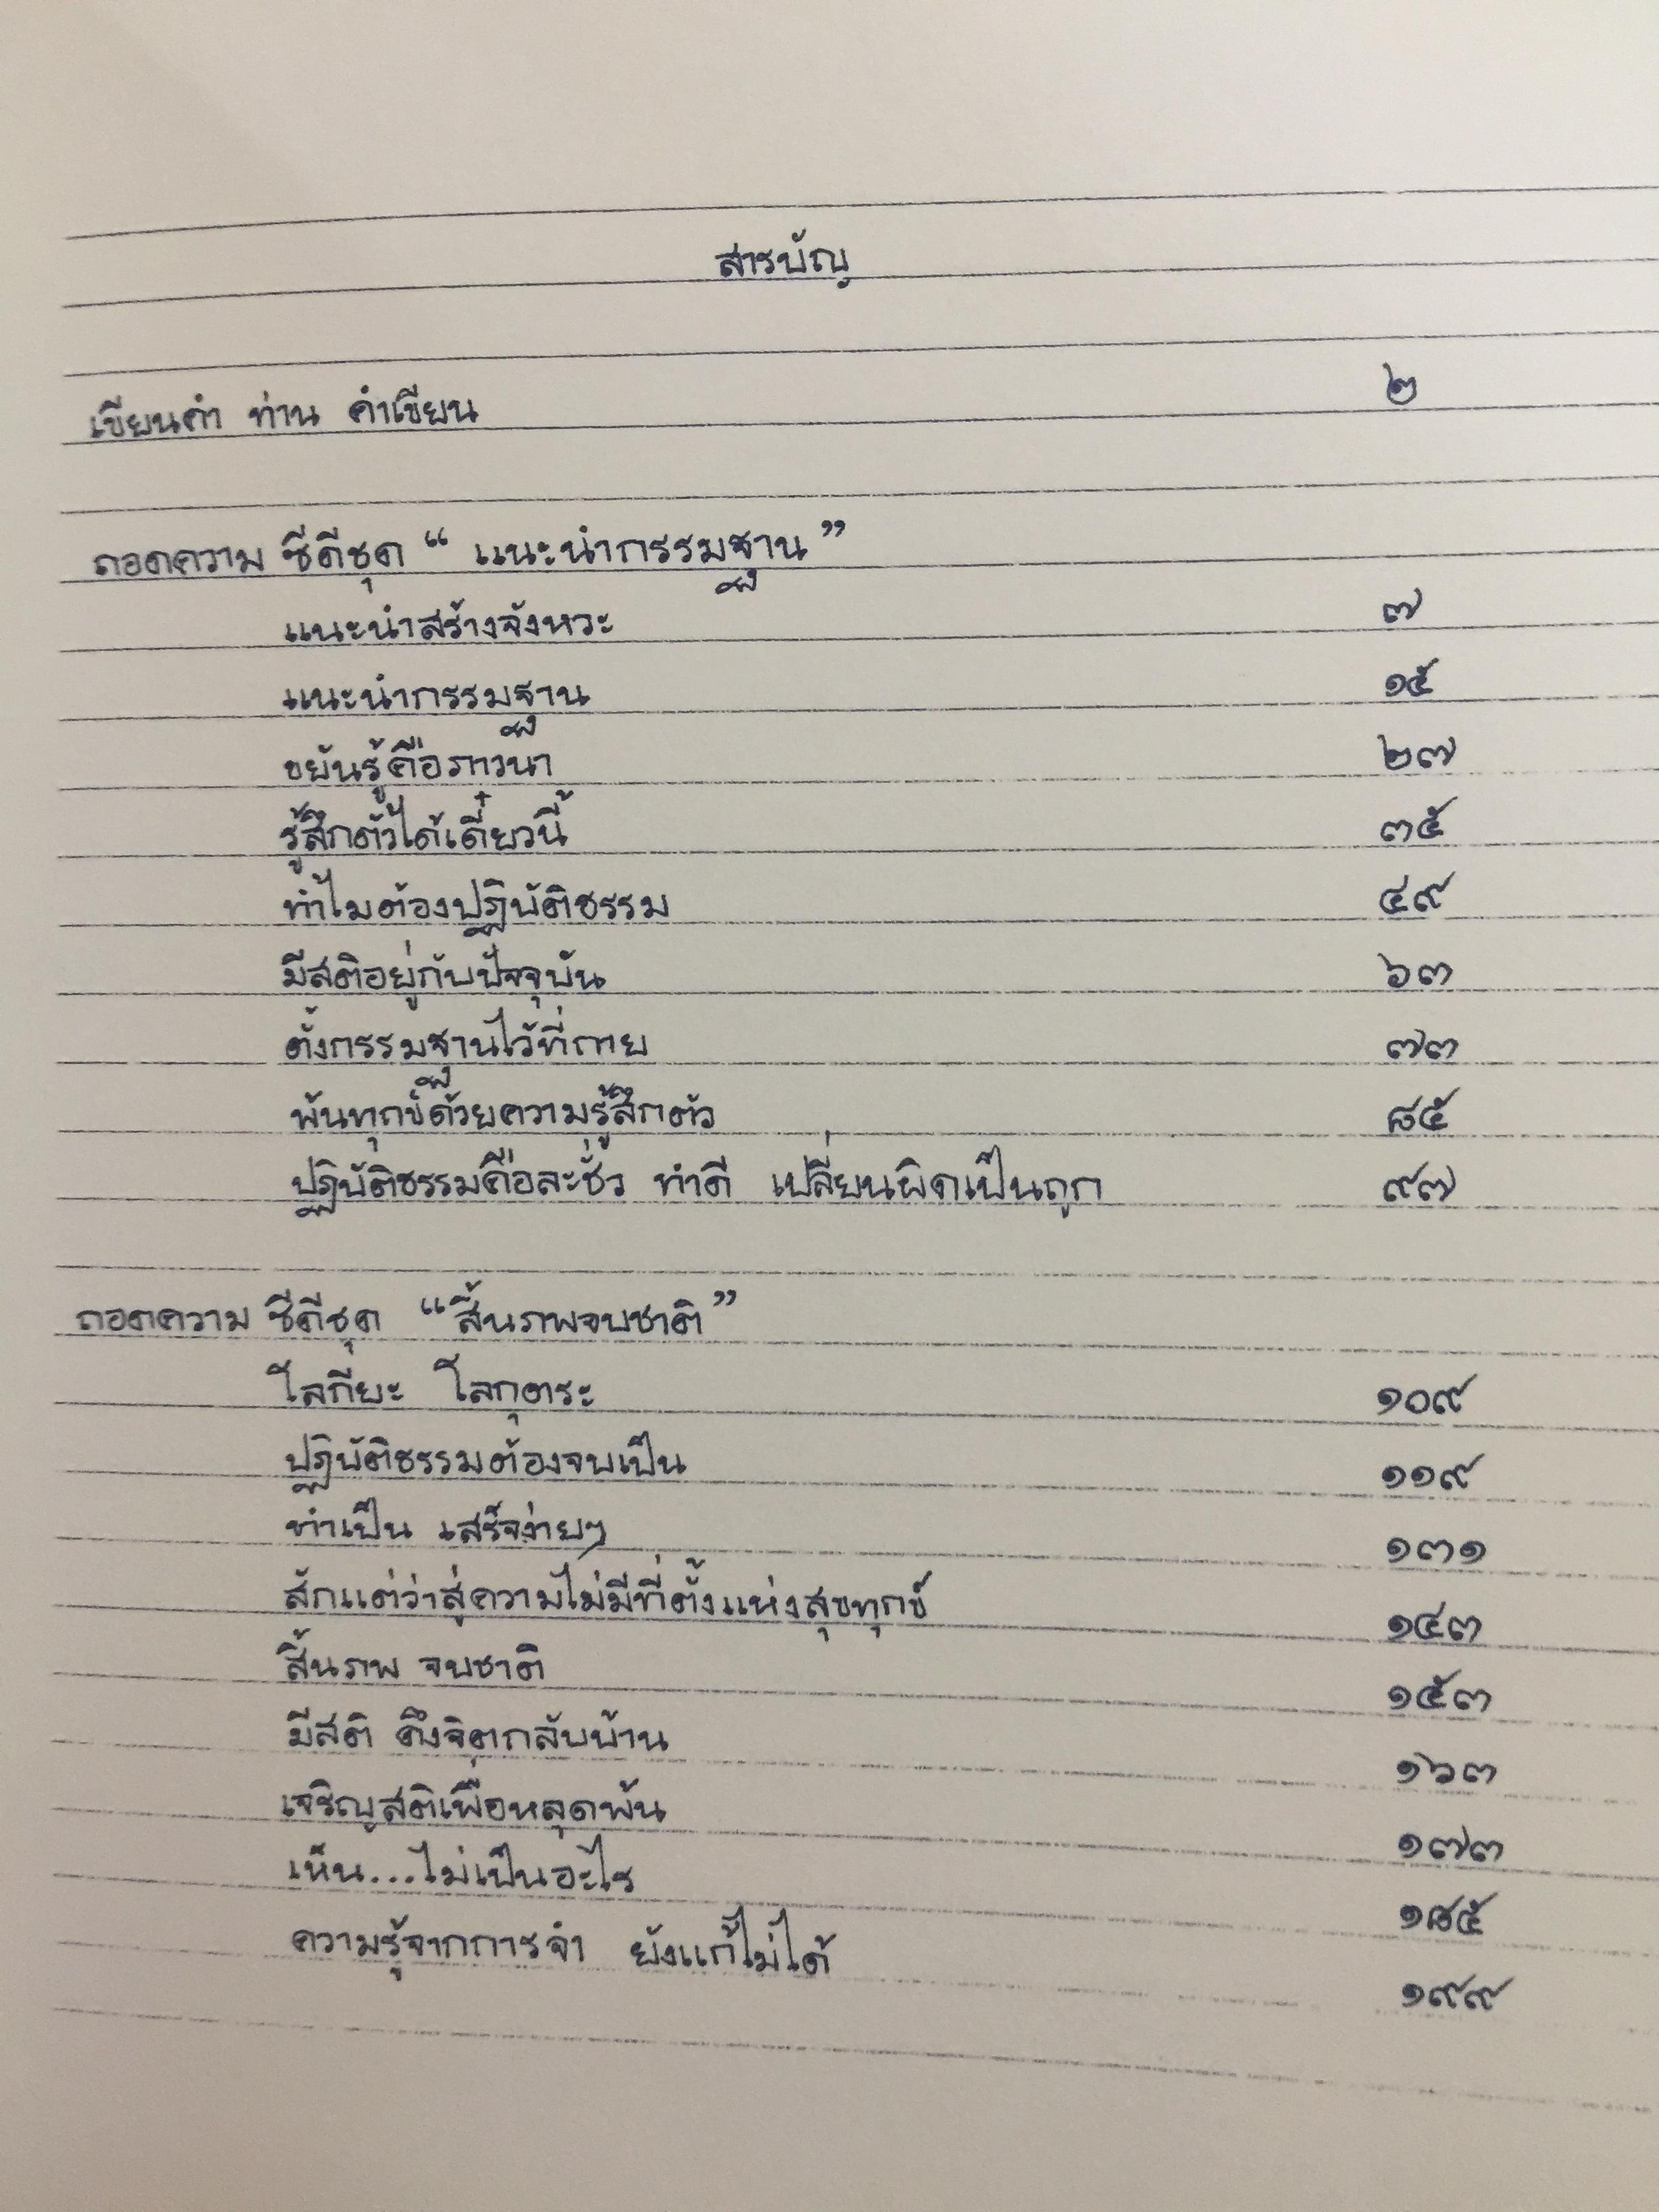 สารบัญ
เขียนคำ ท่าน คำเขียน ๒
ถอดความ ซีดีชุด “ แนะนำกรรมฐาน ”
แนะนำสร้างจังหวะ ๗
แนะนำกรรมฐาน ๑๕
ขยันรู้คือภาวนา ๒๗
รู้สึกตัวได้เดี๋ยวนี้ ๓๕
ทำไมต้องปฏิบัติธรรม ๔๙
มีสติอยู่กับปัจจุบัน ๖๓
ตั้งกรรมฐานไว้ที่กาย ๗๓
พ้นทุกข์ด้วยความรู้สึกตัว ๘๕
ปฏิบัติธรรมคือละชั่ว ทำดี เปลี่ยนผิดเป็นถูก ๙๗
ถอดความ ซีดีชุด “สิ้นภพจบชาติ”
โลกียะ โลกุตระ ๑๐๙
ปฏิบัติธรรมต้องจบเป็น ๑๑๙
ทำเป็น เสร็จง่ายๆ ๑๓๑
สักแต่ว่าสู่ความไม่มีที่ตั้งแห่งสุขทุกข์ ๑๔๓
สิ้นภพ จบชาติ ๑๕๓
มีสติ ดึงจิตกลับบ้าน ๑๖๓
เจริญสติเพื่อหลุดพ้น ๑๗๓
เห็น...ไม่เป็นอะไร ๑๘๕
ความรู้จากการจำ ยังแก้ไม่ได้ ๑๙๙